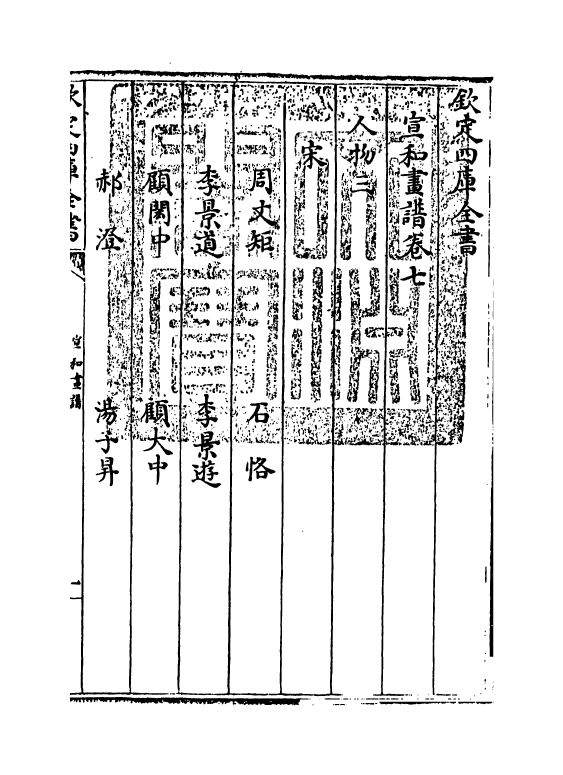 欽定四庫全書
宣和畫譜卷七
人物三
宋
周文矩 石恪
李景道 李景遊
顧閎中 顧大中
郝澄 湯子昇
欽定四庫全書 宣和畫譜